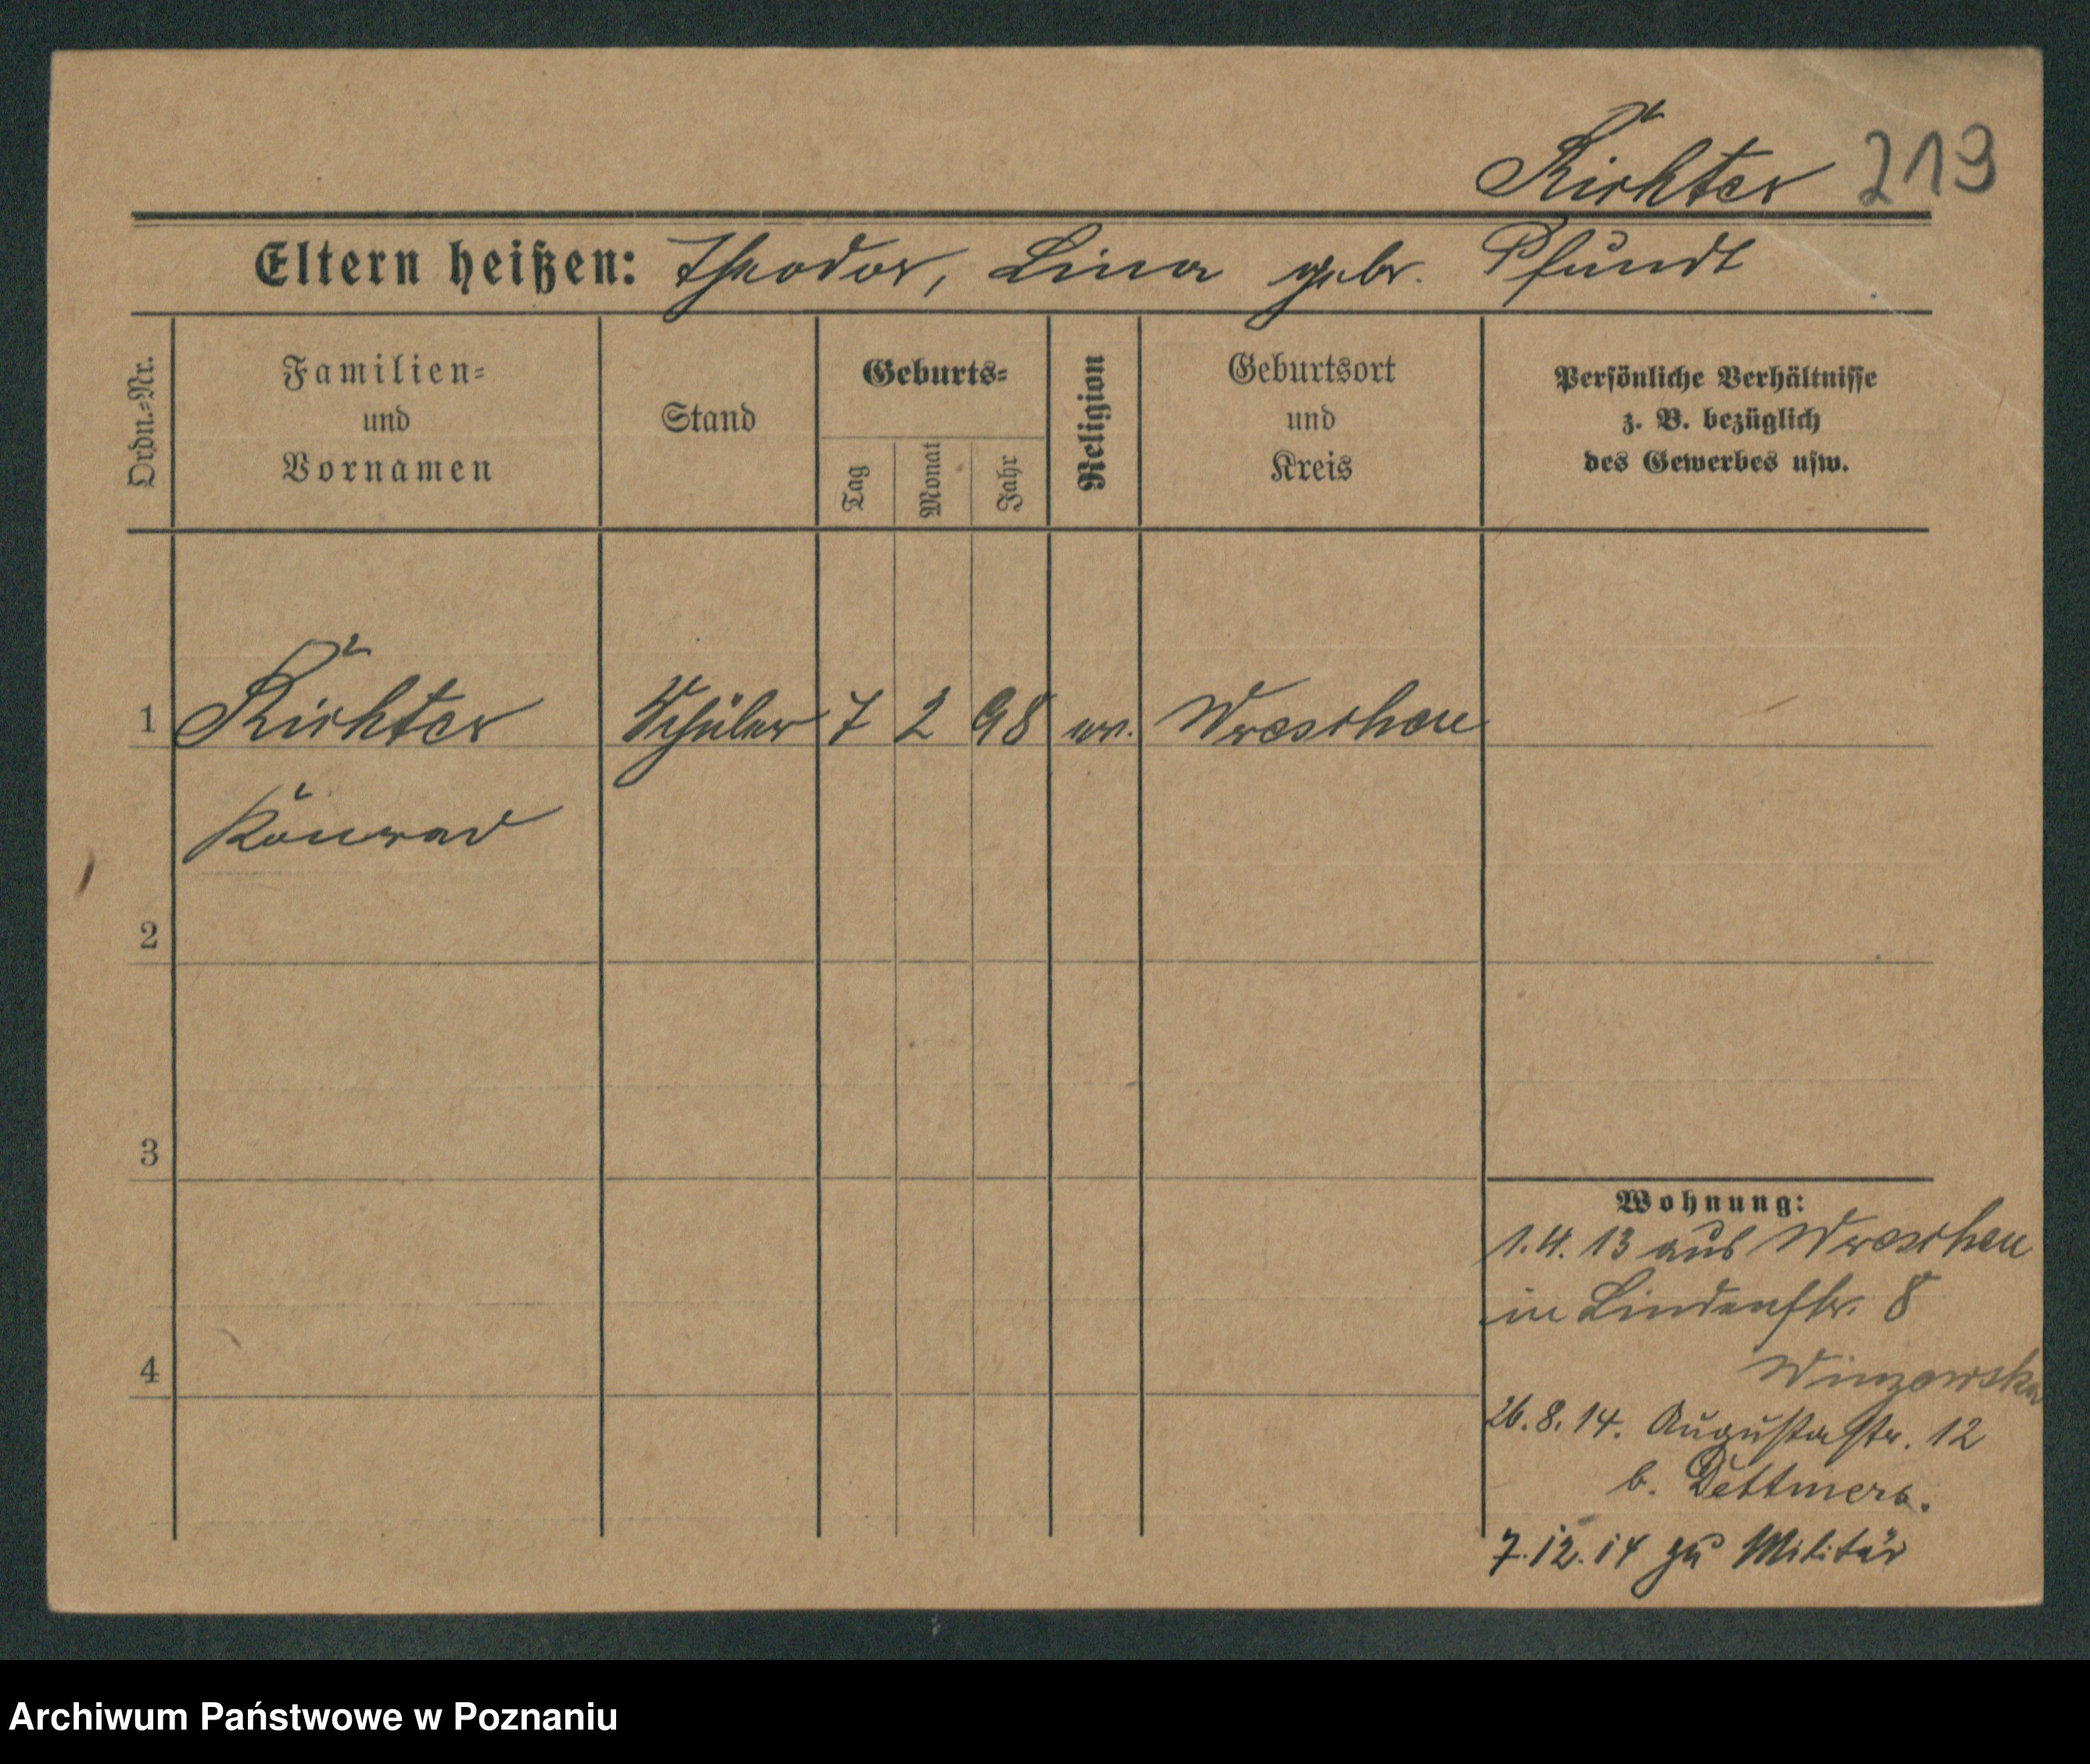 Richter 213
Eltern heißen: Theodor, Lina gebr. Pfundt
Ordn.-Nr.
Familien-
und
Vornamen
Stand
Geburts-
Tag
Monat
Jahr
Religion
Geburtsort
und
Kreis
Persönliche Verhältnisse
z. B. bezüglich
des Gewerbes usw.
1 Richter Schüler 7 2 98 ev. Wreschen
Konrad
2
3
4
Wohnung:
1.4.13 aus Wreschen
in Lindenstr. 8
26.8.14. Augustastr. 12
b. Dettmers.
7.12.14 zu Militär
Archiwum Państwowe w Poznaniu